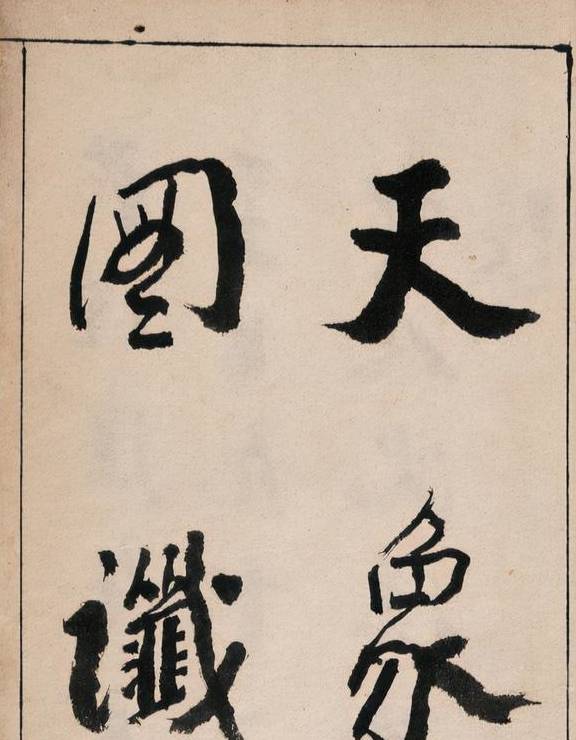 天象
圖讖